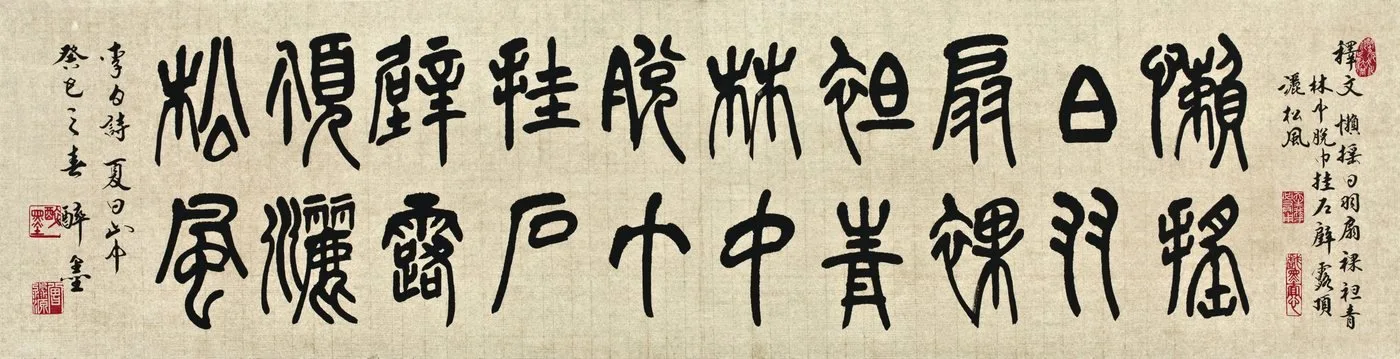 釋文 懶搖白羽扇裸袒青
林中脫巾挂石壁露頂
灑松風
懶搖
白羽
扇裸
袒青
林中
脫巾
挂石
壁露
頂灑
松風
李白詩 夏日山中
癸巳之春 醉墨